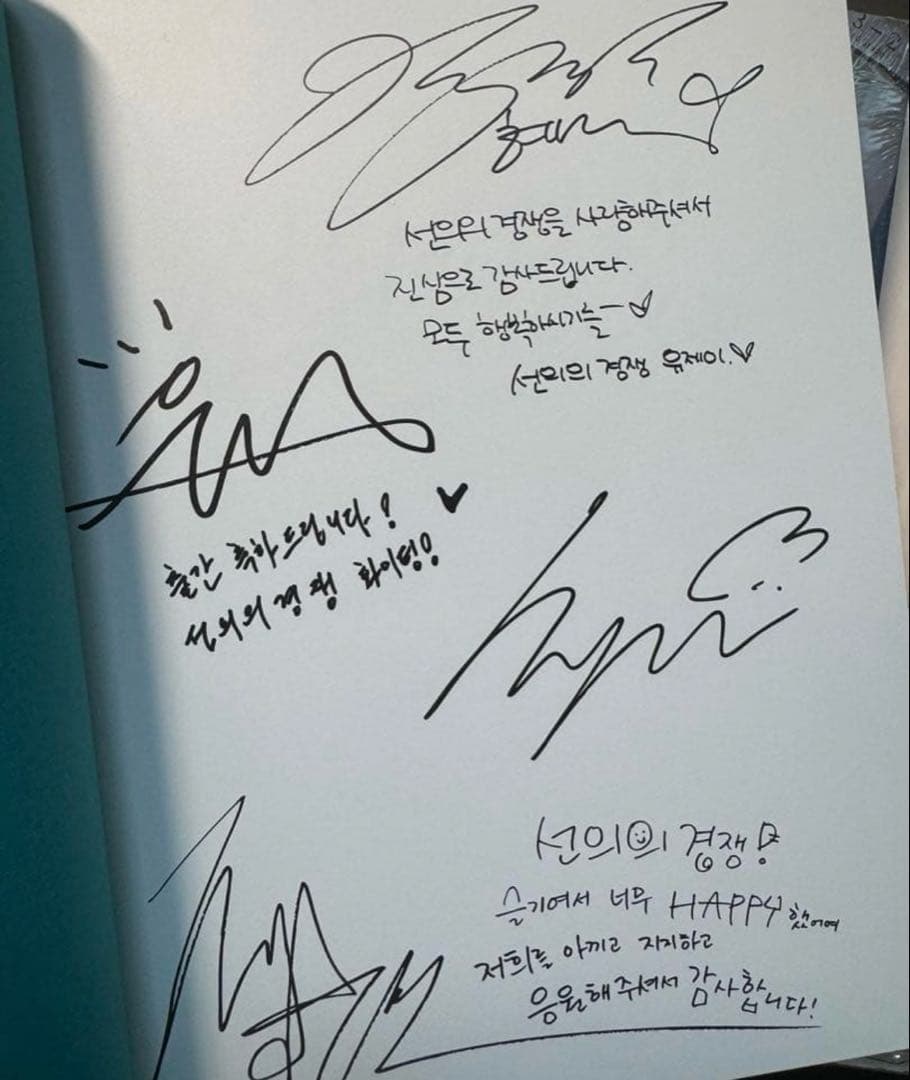 혜리
선의의 경쟁을 사랑해주셔서
진심으로 감사드립니다.
모두 행복하시기를~♡
선의의 경쟁 유제이.♡
출간 축하드립니다! ♥
선의의 경쟁 화이팅!
선의의 경쟁!
즐기여서 너무 HAPPY했어여
저희를 아끼고 지지하고
응원해주셔서 감사합니다!